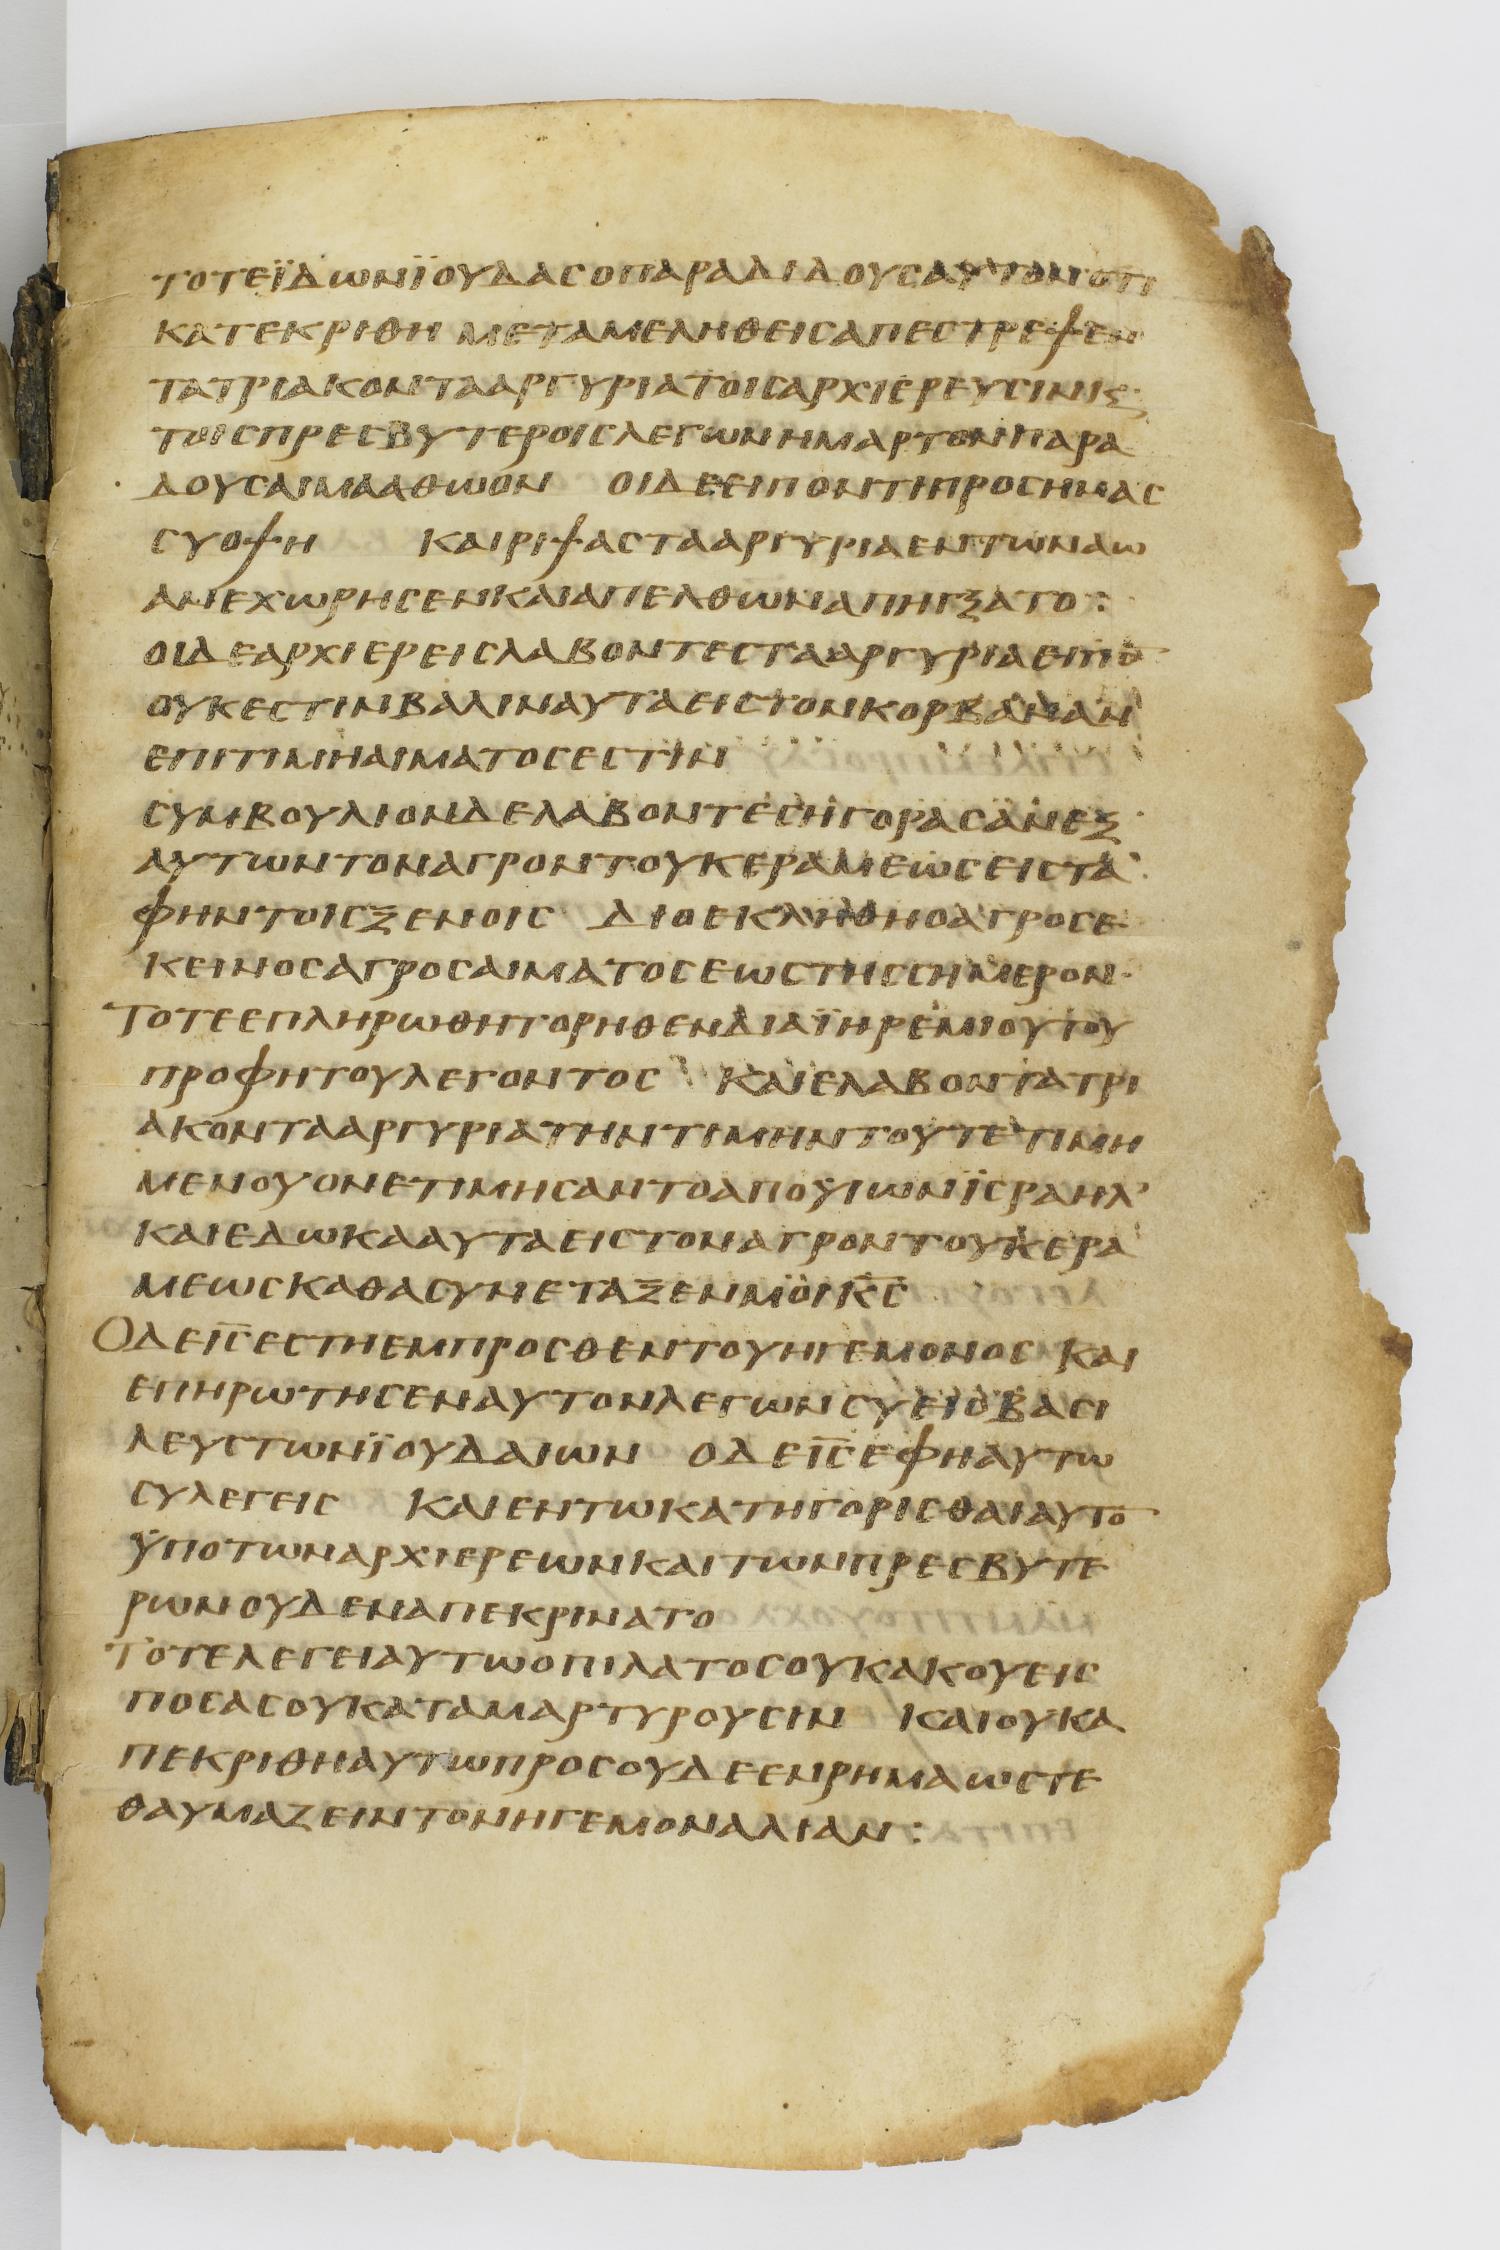 τοτεϊδωνϊουδασοπαραδιδουσαυτονοτι
κατεκριθη μεταμεληθεισαπεστρεψεν
τατριακοντααργυριατοισαρχιερευσινκς
τοισπρεσβυτεροισλεγωνημαρτονπαρα
δουσαιμααθωον οιδεειποντιπροσημας
συοψη καιριψαστααργυριαεντωναω
ανεχωρησενκαιαπελθωναπηγξατο:
οιδεαρχιερεισλαβοντεστααργυριαειπο̅
ουκεστινβαλιναυταειστονκορβαναν
επιτιμηαιματοσεστιν
συμβουλιονδελαβοντεσηγορασανεξ
αυτωντοναγροντουκεραμεωσειστα
φηντοισξενοις διοεκληθηοαγροσε
κεινοσαγροσαιματοσεωστησσημερον·
Τοτεεπληρωθητορηθενδιαϊηρεμιουτου
προφητουλεγοντος καιελαβοντατρι
ακοντααργυριατηντιμηντουτετιμη
μενουονετιμησαντοαποϋιωνϊσραηλ
καιεδωκααυταειστοναγροντουκερα
μεωσκαθασυνεταξενμοικ̅ς̅
Οδει̅ς̅εστηεμπροσθεντουηγεμονος και
επηρωτησεναυτονλεγωνσυειοβασι
λευστωνϊουδαιων οδει̅ς̅εφηαυτω
συλεγεις καιεντωκατηγορισθαιαυτο̅
ϋποτωναρχιερεωνκαιτωνπρεσβυτε
ρωνουδεναπεκρινατο
Τοτελεγειαυτωοπιλατοσουκακουεις
ποσασουκαταμαρτυρουσιν καιουκα
πεκριθηαυτωπροσουδεενρημαωστε
θαυμαζειντονηγεμοναλιαν: